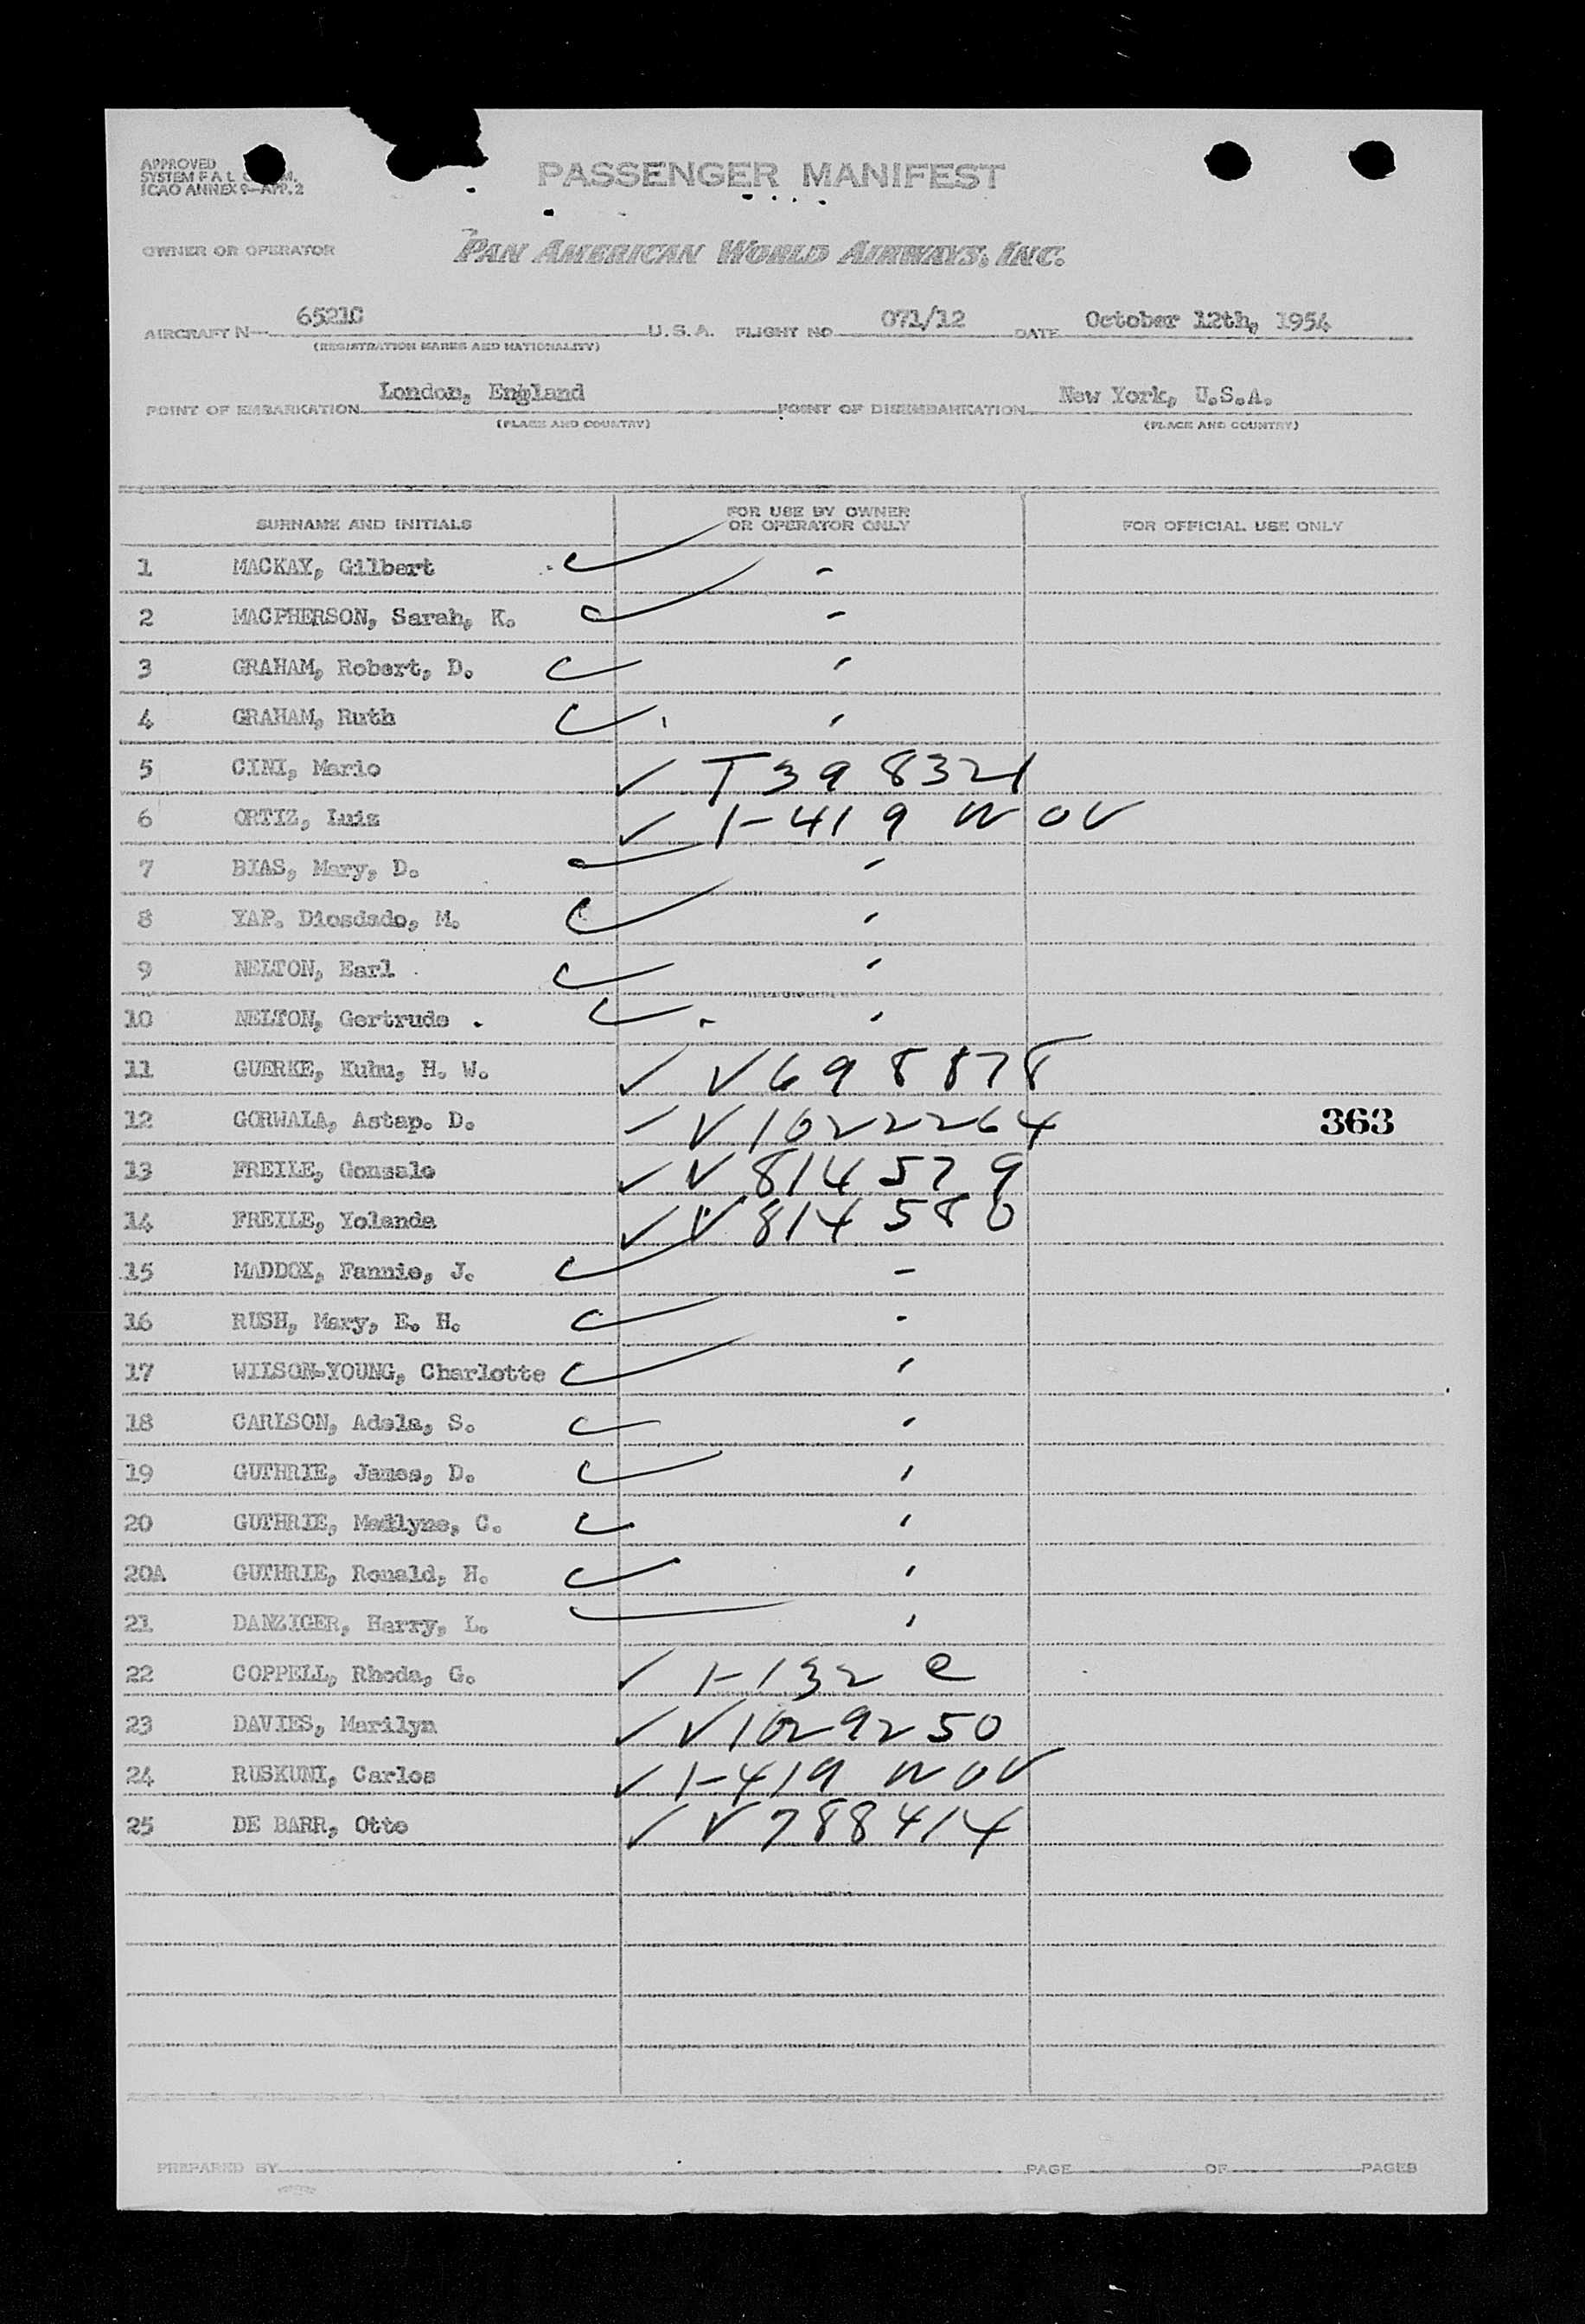 APPROVED
SYSTEM F A L COMM.
ICAO ANNEX 9—APP. 2
PASSENGER MANIFEST
OWNER OR OPERATOR PAN AMERICAN WORLD AIRWAYS, INC.
AIRCRAFT N— 6521C U.S.A. FLIGHT NO 071/12 DATE October 12th, 1954
(REGISTRATION MARKS AND NATIONALITY)
POINT OF EMBARKATION London, England POINT OF DISEMBARKATION New York, U.S.A.
(PLACE AND COUNTRY) (PLACE AND COUNTRY)
SURNAME AND INITIALS FOR USE BY OWNER OR OPERATOR ONLY FOR OFFICIAL USE ONLY
1 MACKAY, Gilbert ✓ -
2 MACPHERSON, Sarah, K. ✓ -
3 GRAHAM, Robert, D. ✓
4 GRAHAM, Ruth ✓
5 CINI, Mario ✓ T398321
6 ORTIZ, Luis ✓ 1-419 NOV
7 BIAS, Mary, D. ✓
8 YAP. Diosdado, M. ✓
9 NELTON, Earl ✓
10 NELTON, Gertrude . ✓
11 GUERKE, Kuhu, H. W. ✓ V698878
12 GORWALA, Astap. D. ✓ V1022264 363
13 FREILE, Gonzalo ✓ V814579
14 FREILE, Yolanda ✓ V814580
15 MADDOX, Fannie, J. ✓ -
16 RUSH, Mary, E. H. ✓ -
17 WILSON-YOUNG, Charlotte ✓
18 CARLSON, Adela, S. ✓
19 GUTHRIE, James, D. ✓
20 GUTHRIE, Madlyne, C. ✓
20A GUTHRIE, Ronald, H. ✓
21 DANZIGER, Harry, L. ✓
22 COPPELL, Rhoda, G. ✓ 1-132 e
23 DAVIES, Marilyn ✓ V1029250
24 RUSKUNI, Carlos ✓ 1-419 NOV
25 DE BARR, Otto ✓ V788414
PREPARED BY PAGE OF PAGES